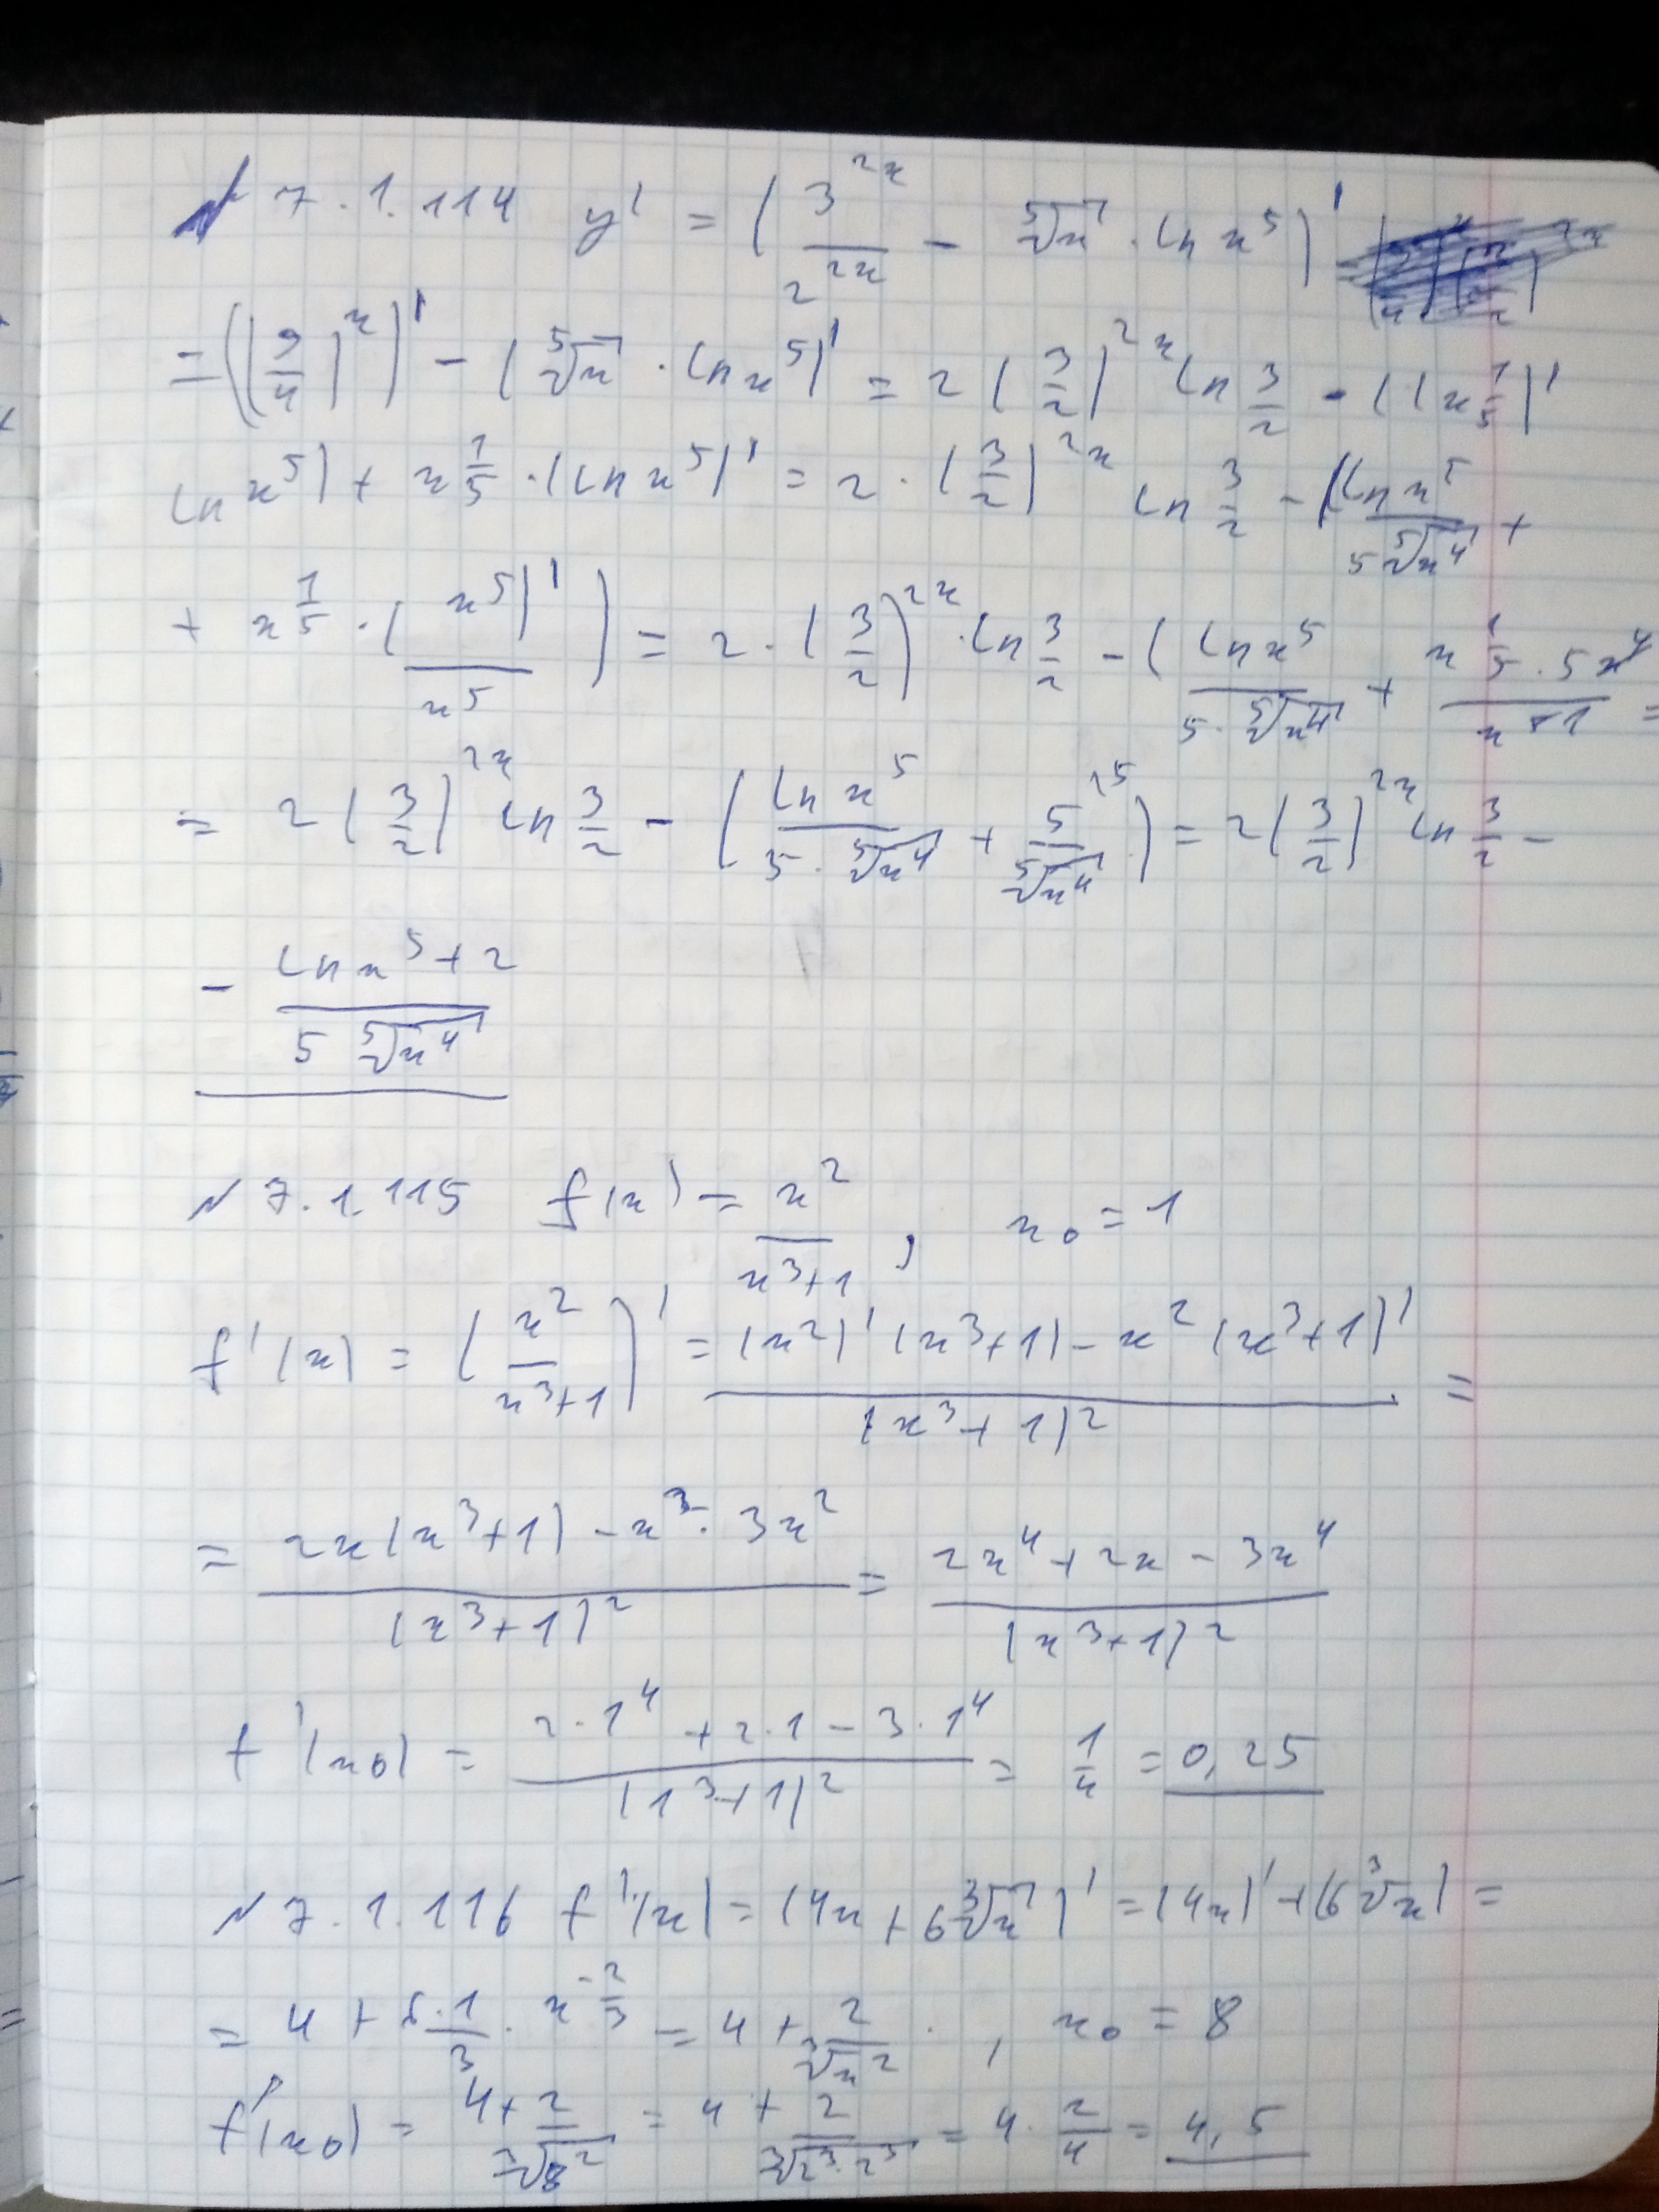 № 7.1.114 y' = (3^{2x}/2^{2x} - ⁵√x · ln x⁵)'
= ((9/4)^x)' - (⁵√x · ln x⁵)' = 2(3/2)^{2x} ln 3/2 - ((x^{1/5})'
ln x⁵) + x^{1/5} · (ln x⁵)' = 2 · (3/2)^{2x} ln 3/2 - (ln x⁵/(5 ⁵√x⁴) +
+ x^{1/5} · (x⁵)'/x⁵) = 2 · (3/2)^{2x} · ln 3/2 - (ln x⁵/(5 · ⁵√x⁴) + x^{1/5} · 5x⁴/x =
= 2(3/2)^{2x} ln 3/2 - (ln x⁵/(5 · ⁵√x⁴) + 5/⁵√x⁴) = 2(3/2)^{2x} ln 3/2 -
- (ln x⁵ + 2)/(5 ⁵√x⁴)
№ 7.1.115 f(x) = x²/(x³+1), x₀ = 1
f'(x) = (x²/(x³+1))' = ((x²)'(x³+1) - x²(x³+1)')/(x³+1)² =
= (2x(x³+1) - x³ · 3x²)/(x³+1)² = (2x⁴ + 2x - 3x⁴)/(x³+1)²
f'(x₀) = (2·1⁴ + 2·1 - 3·1⁴)/(1³+1)² = 1/4 = 0,25
№ 7.1.116 f'(x) = (4x + 6∛x)' = (4x)' + (6∛x) =
= 4 + 6·1/3 · x^{-2/3} = 4 + 2/∛x², x₀ = 8
f'(x₀) = 4 + 2/∛8² = 4 + 2/∛(2³·2³) = 4 · 2/4 = 4,5